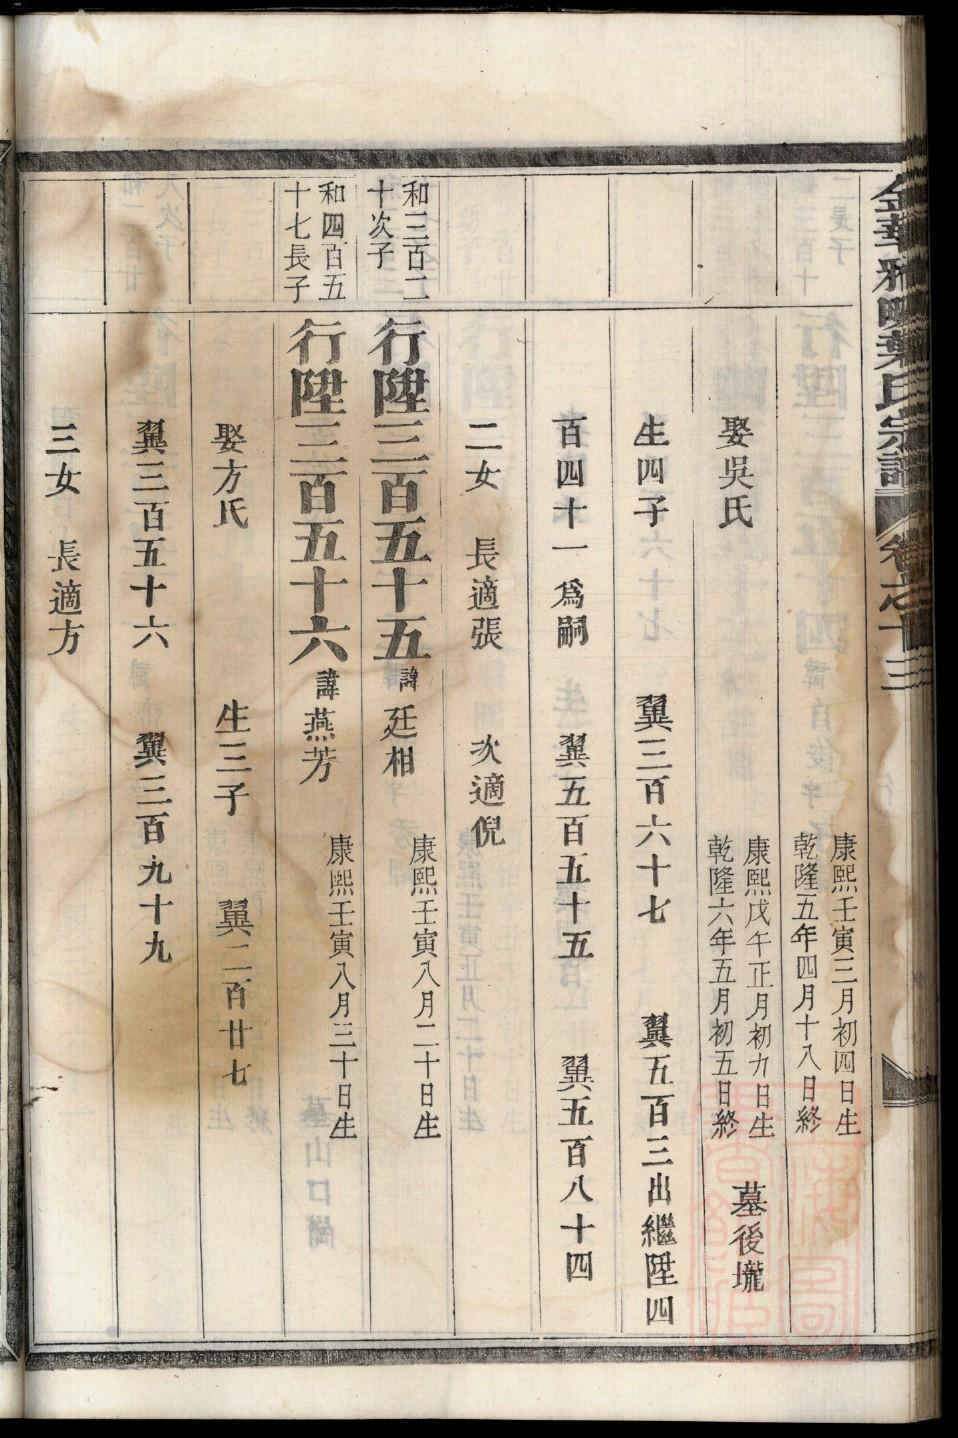 金華雅畈葉氏宗譜 卷之十三
康熙壬寅三月初四日生
乾隆五年四月十八日終
娶吳氏
康熙戊午正月初九日生
乾隆六年五月初五日終
墓後壠
生四子 翼三百六十七 翼五百三出繼陞四
百四十一爲嗣 翼五百五十五 翼五百八十四
二女 長適張 次適倪
和三百二
十次子
行陞三百五十五 諱廷相 康熙壬寅八月二十日生
和四百五
十七長子
行陞三百五十六 諱燕芳 康熙壬寅八月三十日生
娶方氏 生三子 翼二百廿七
翼三百五十六 翼三百九十九
三女 長適方